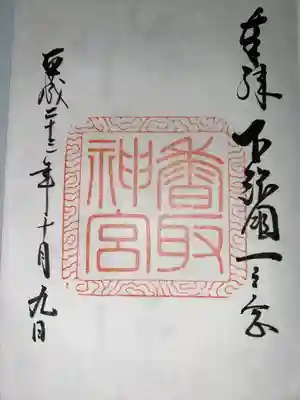 奉拝 下総国一之宮
香取
神宮
平成二十二年十月九日